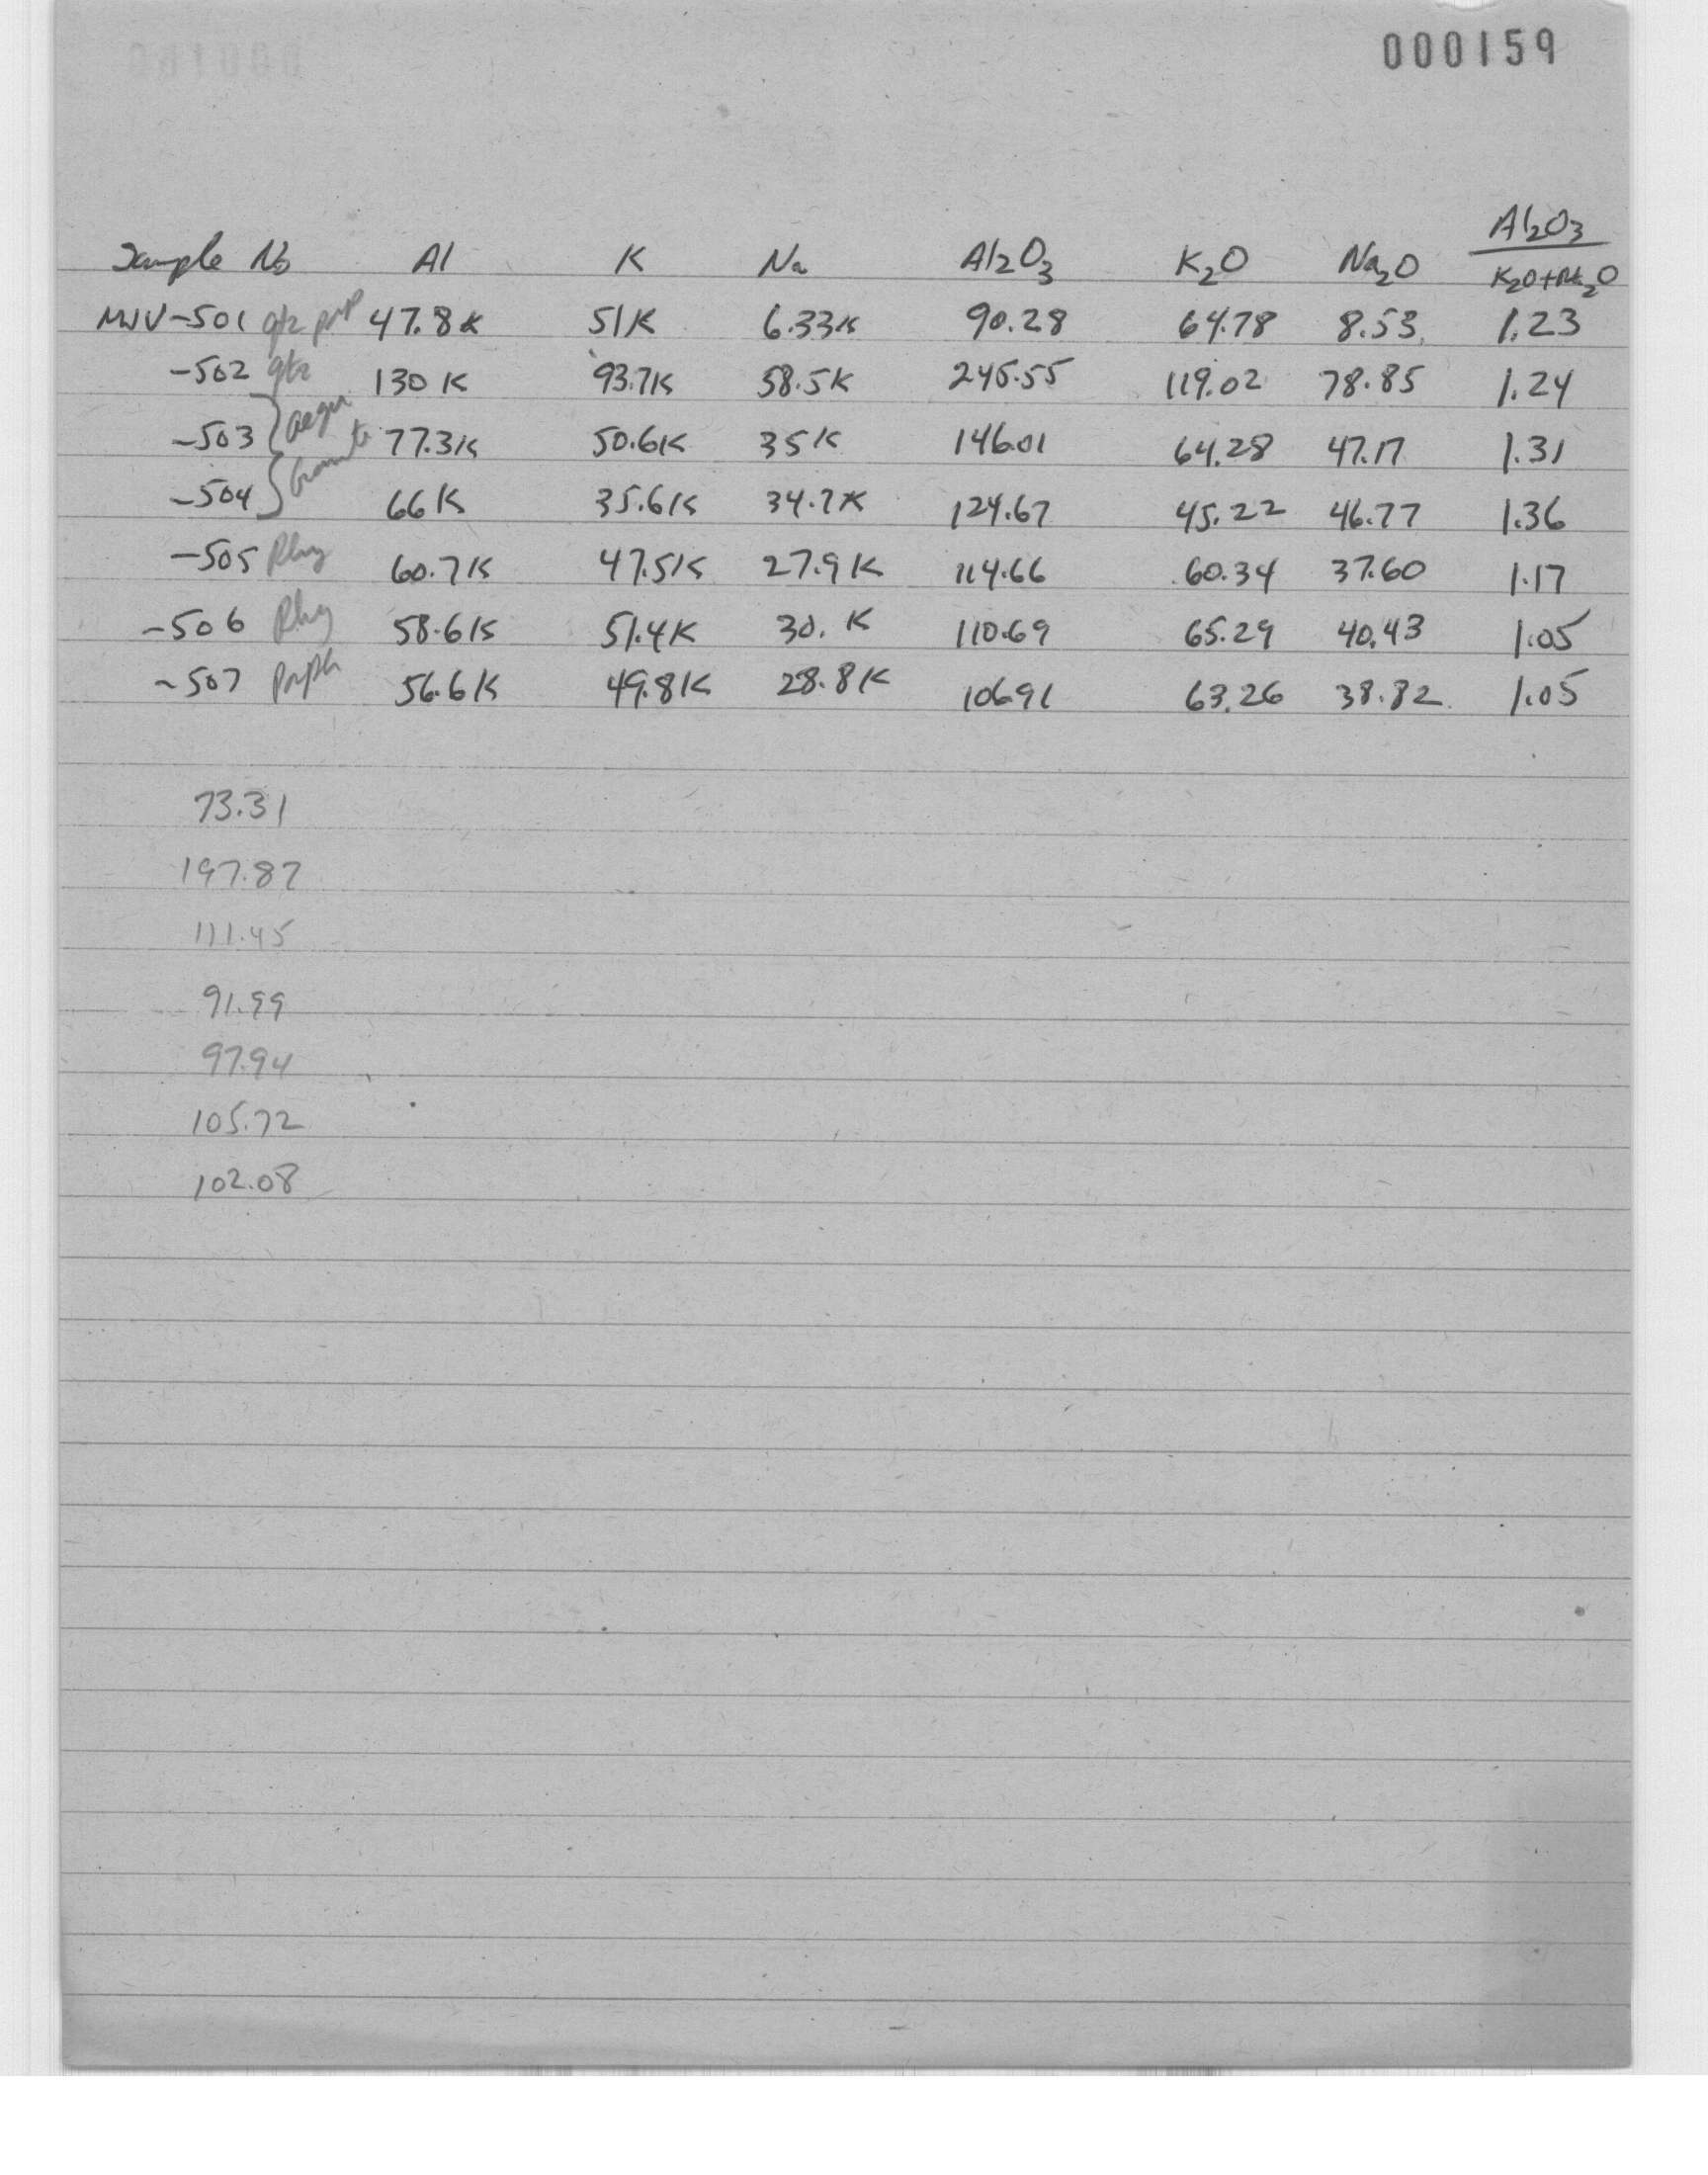 000159
Al2O3
Sample No Al K Na Al2O3 K2O Na2O K2O+Na2O
MWV-501 qtz porp 47.8K 51K 6.33K 90.28 64.78 8.53 1.23
-502 qtz 130K 93.7K 58.5K 245.55 119.02 78.85 1.24
-503 77.3K 50.6K 35K 146.01 64.28 47.17 1.31
Granite
-504 66K 35.6K 34.7K 124.67 45.22 46.77 1.36
-505 Rhy 60.7K 47.5K 27.9K 114.66 60.34 37.60 1.17
-506 Rhy 58.6K 51.4K 30. K 110.69 65.29 40.43 1.05
-507 Porph 56.6K 49.8K 28.8K 106.91 63.26 38.82 1.05
73.31
197.87
111.45
91.99
97.94
105.72
102.08